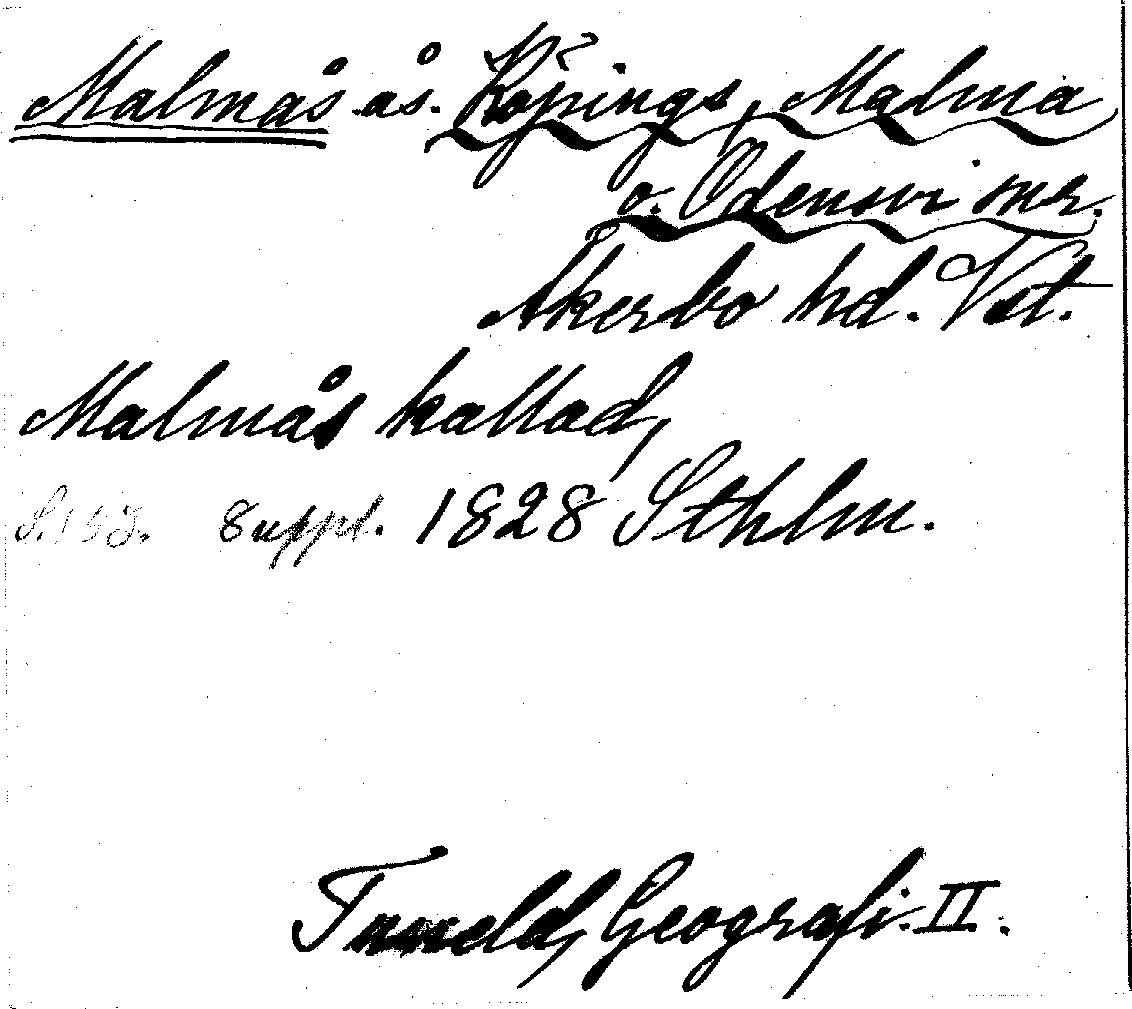 Malmås ås. Köpings, Malma
o. Odensvi snr.
Åkerbo hd. Vst.
Malmås kallad,
S. 153. Suppl. 1828 Sthlm.
Tuneld, Geografi. II.